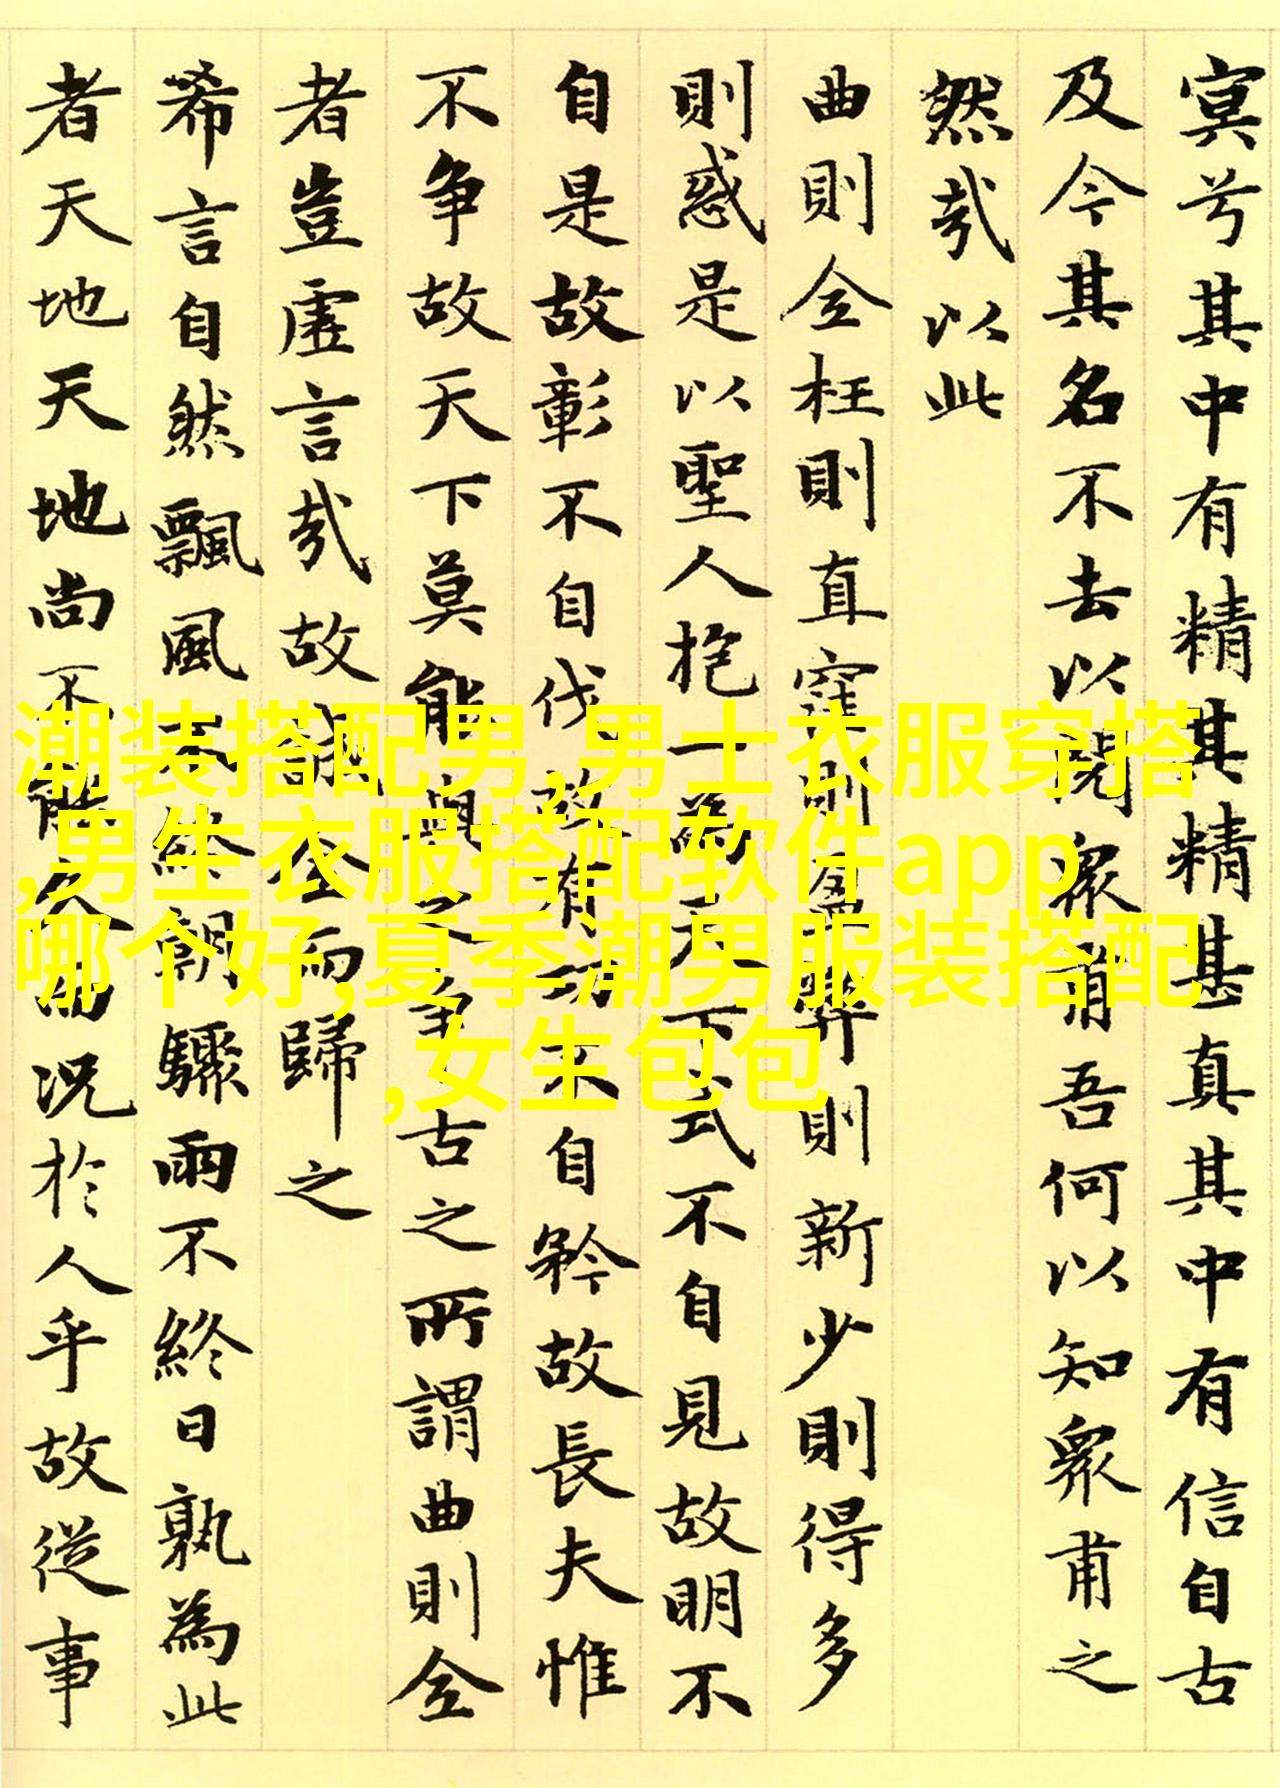 冥兮其中有精其精甚真其中有信自古
及今其名不去以閱衆甫吾何以知衆甫之
然哉以此
曲則全枉則直窪則盈弊則新少則得多
則惑是以聖人抱一為天下式不自見故明不
自是故彰不自伐故有功不自矜故長夫惟
不争故天下莫能與之争古之所謂曲則全
者豈虛言哉故誠全而歸之
希言自然飄風不終朝驟雨不終日孰為此
者天地天地尚不能久而况於人乎故從事
潮装搭配男,男士衣服穿搭
,男生衣服搭配软件app
哪个好,夏季潮男服装搭配
,女生包包